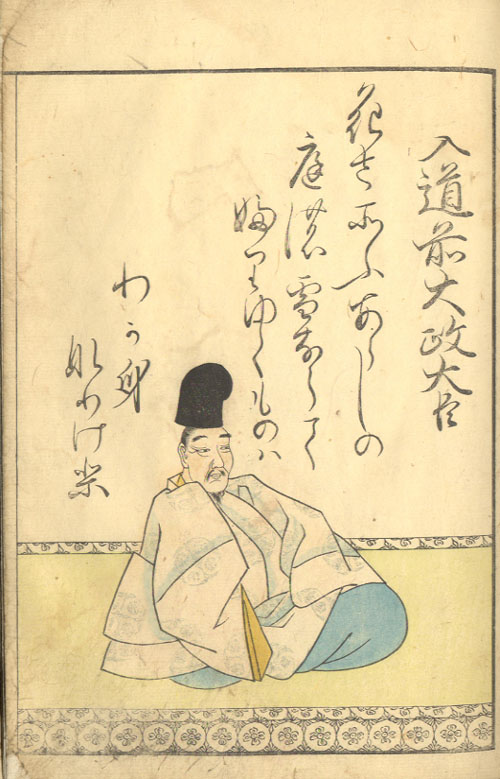 入道前大政大臣
花さそふあらしの
庭の雪ならて
ふりゆくものハ
わか身
なりけり